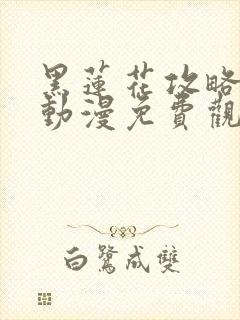 黑蓮花攻略
動漫免費觀
白鷺成雙